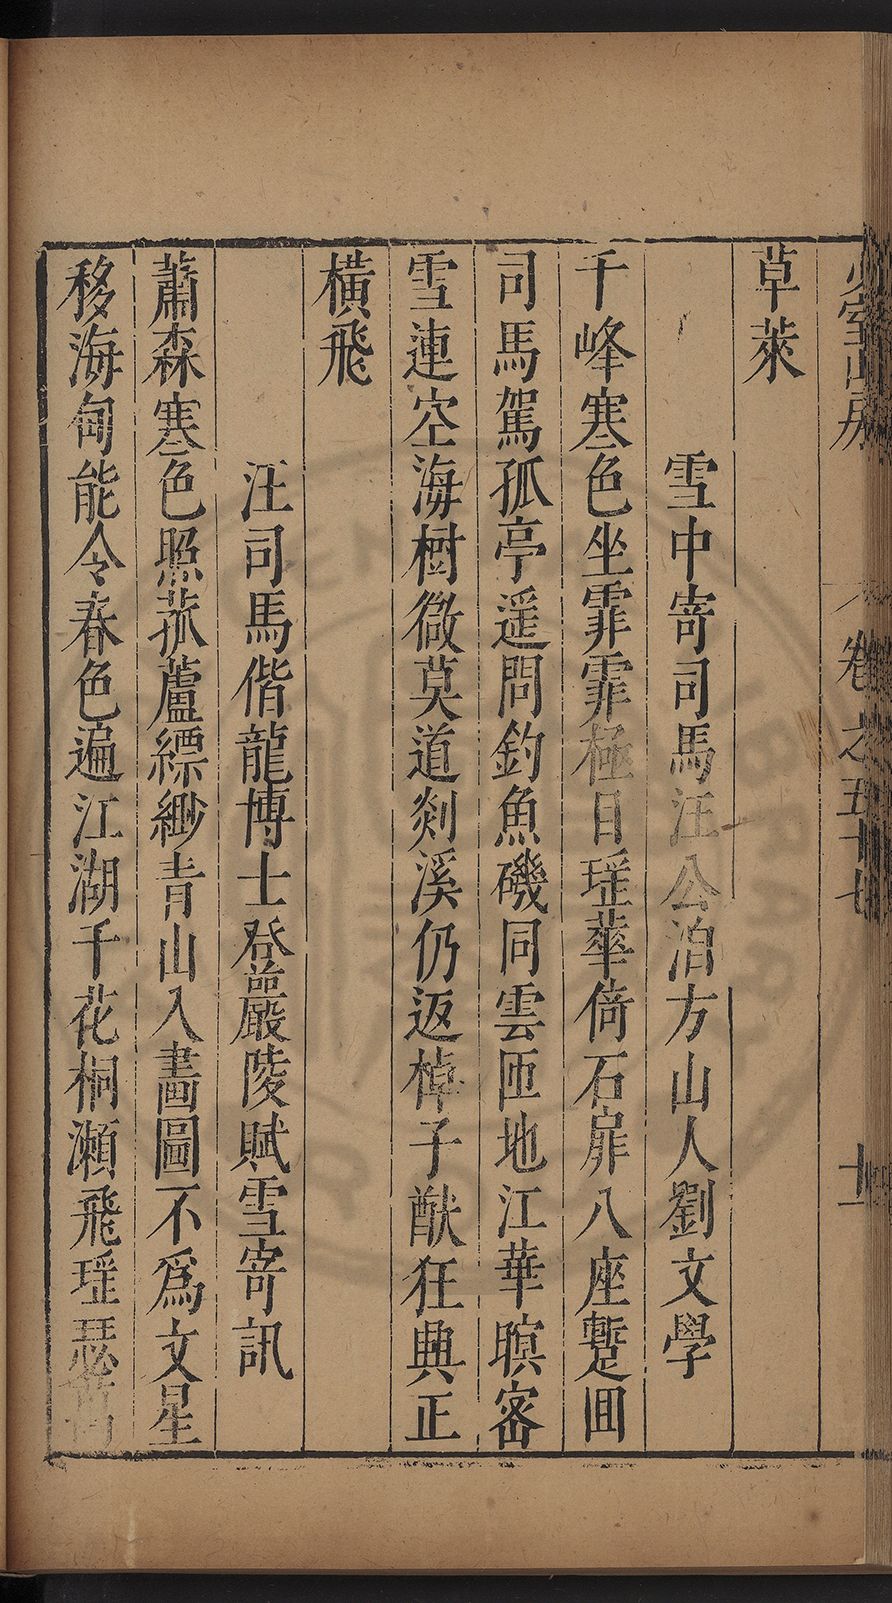 少室山房
卷之五十七
十一
草萊
雪中寄司馬汪公泊方山人劉文學
千峰寒色坐霏霏極日瑶華倚石扉八座蹔囬
司馬駕孤亭遥問釣魚磯同雲匝地江華暝密
雪連空海樹微莫道剡溪仍返棹子猷狂興正
橫飛
汪司馬偕龍博士登嚴陵賦雪寄訊
蕭森寒色照菰蘆縹緲青山入畵圖不爲文星
移海甸能令春色遍江湖千花桐瀬飛瑶瑟萬